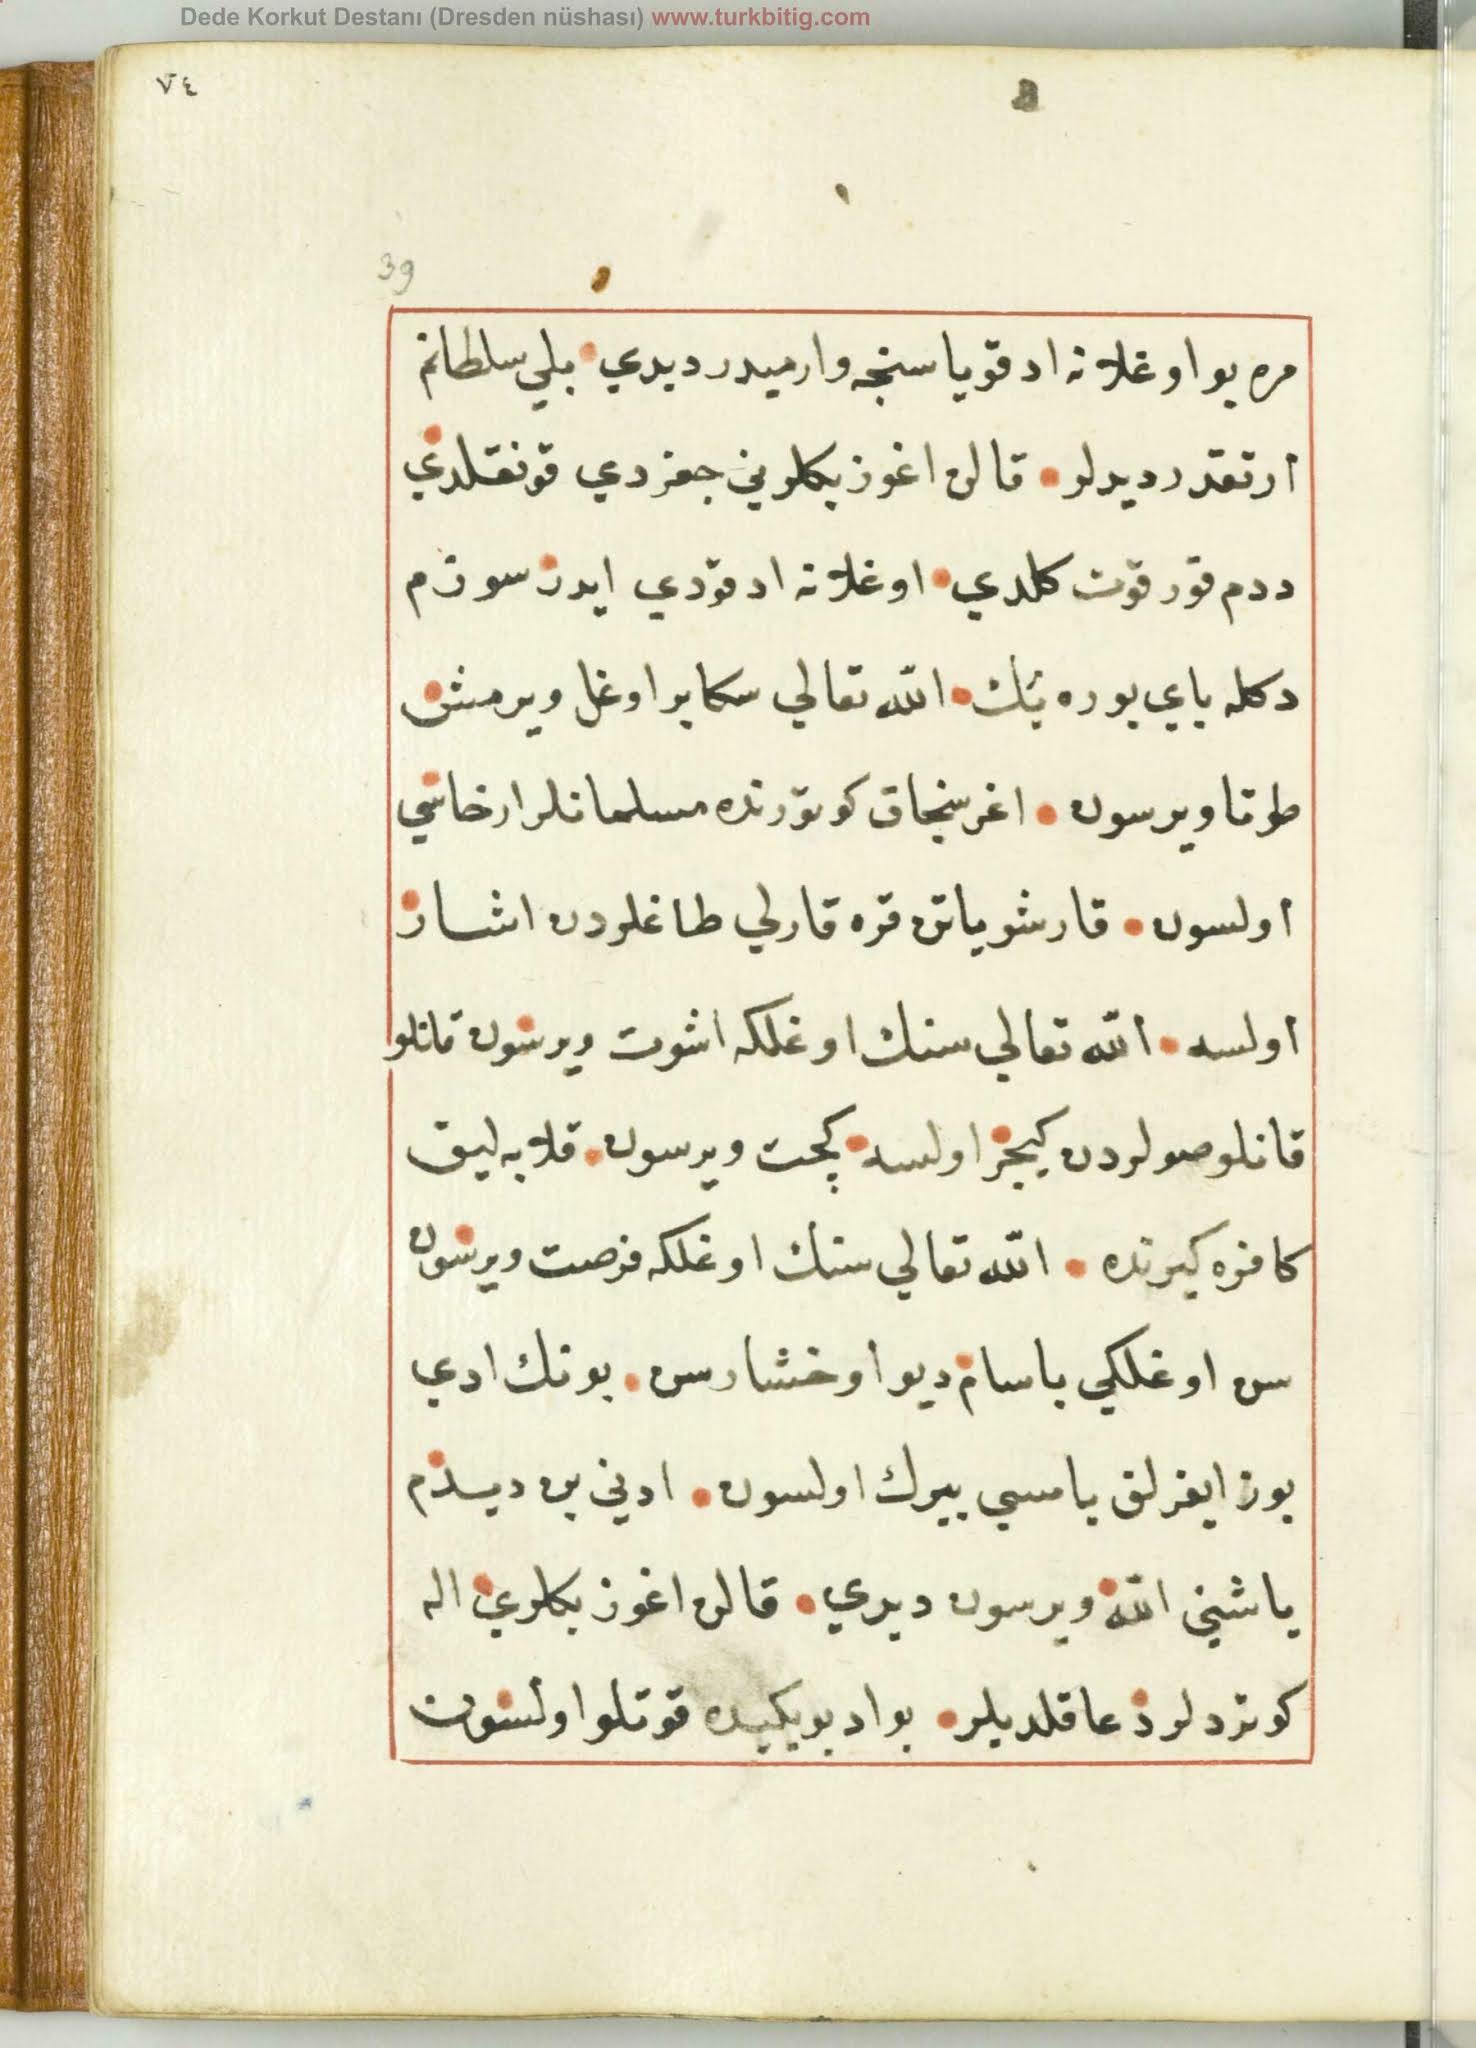 Dede Korkut Destanı (Dresden nüshası) www.turkbitig.com
٧٤
39
مره بو اوغلانه اد قویاسنجه وارمیدر دیدي بلي سلطانم
ارتقدر دیدلر قالن اغوز بکلرین جغردي قونقلدي
ددم قورقوت کلدي اوغلانه اد قودي ایدر سوزم
دکله باي بوره بك الله تعالي سکا بر اوغل ویرمش
طوتا ویرسون اغر سنجاق کوتورنده مسلمانلر ارخاسي
اولسون قارشو یاتن قره قارلي طاغلردن اشار
اولسه الله تعالي سنك اوغلکه اشوت ویرسون قانلو
قانلو صولردن کیجر اولسه کجت ویرسون قلابه لیق
کافره کیرنده الله تعالي سنك اوغلکه فرصت ویرسون
سن اوغلکي باسام دیو اوخشارسن بونك ادي
بوز ایغرلق بامسي بیرك اولسون ادیني بن دیدم
یاشني الله ویرسون دیدي قالن اغوز بکلري اله
کوتردلر دعا قلدیلر بو اد بو یکیده قوتلو اولسون